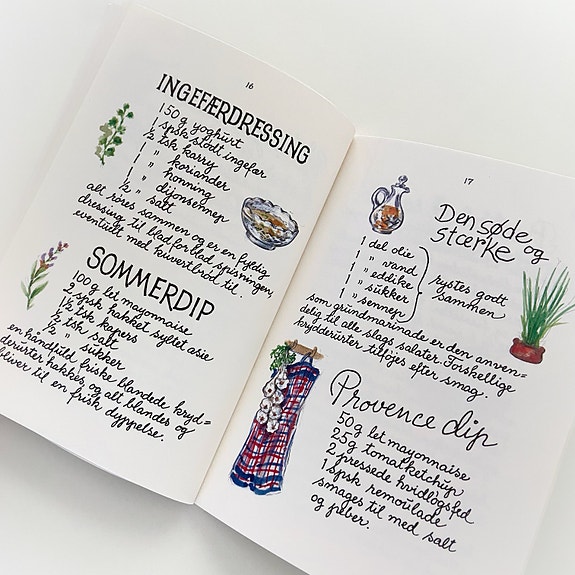 16
INGEFÆRDRESSING
150 g yoghurt
1 spsk stødt ingefær
½ tsk karry
1 " koriander
1 " honning
1 " dijonsennep
½ " salt
alt røres sammen og er en fyldig
dressing til blad for blad spisningen,
eventuelt med kuvertbrød til.
SOMMERDIP
100 g let mayonnaise
2 spsk hakket syltet asie
1½ tsk kapers
½ tsk salt
½ " sukker
en håndfuld friske blandede kryd=
derurter hakkes og alt blandes og
bliver til en frisk dyppelse.
17
Den søde og
stærke
1 del olie
1 " vand
1 " eddike
1 " sukker
1 " sennep
rystes godt
sammen
som grundmarinade er den anven=
delig til alle slags salater. Forskellige
krydderurter tilføjes efter smag.
Provence dip
50 g let mayonnaise
25 g tomatketchup
2 pressede hvidløgsfed
1 spsk remoulade
smages til med salt
og peber.